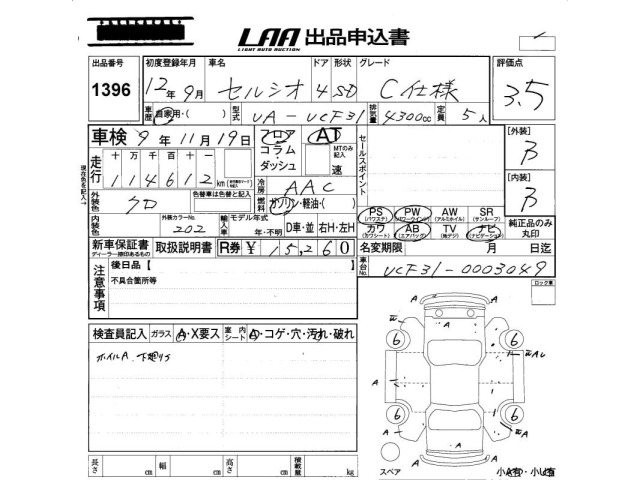 LAA 出品申込書
LIGHT AUTO AUCTION
出品番号 初度登録年月 車名 ドア 形状 グレード 評価点
1396 12年9月 セルシオ 4 SD C仕様 3.5
車歴 自家用・( ) 型式 UA-UCF31 排気量 4300cc 定員 5人
車検 9年11月19日 フロア コラム・ダッシュ AT MTのみ記入 速
セールスポイント
[外装] B
[内装] B
走行 十万千百十一
114612 km
冷房 AAC
現在色を記入
外装色 クロ 色替車は色替と記入 燃料 ガソリン・軽油・( )
内装色 外装カラーNo. 202 輸入車 モデル年式 年・不明 D車・並 右H・左H
PS (パワステ) PW (パワーウインド) AW (アルミホイル) SR (サンルーフ)
カワ (カワシート) AB (エアバッグ) TV (地デジ) ナビ (ナビゲーション)
純正品のみ丸印
新車保証書 ディーラー捺印あるもの 取扱説明書 R券 ¥15,260
名変期限 月 日迄
車台No. UCF31-0003049
注意事項 後日品【
不具合箇所等
ロック車
検査員記入 ガラス A・X要ス 室内シート A・コゲ・穴・汚れ・破れ
ホイルA 下廻りサ
A A
6 6
A
A
6 6
A A
A
スペア
小A有・小U有
長さ cm 幅 cm 高さ cm 積載量 kg